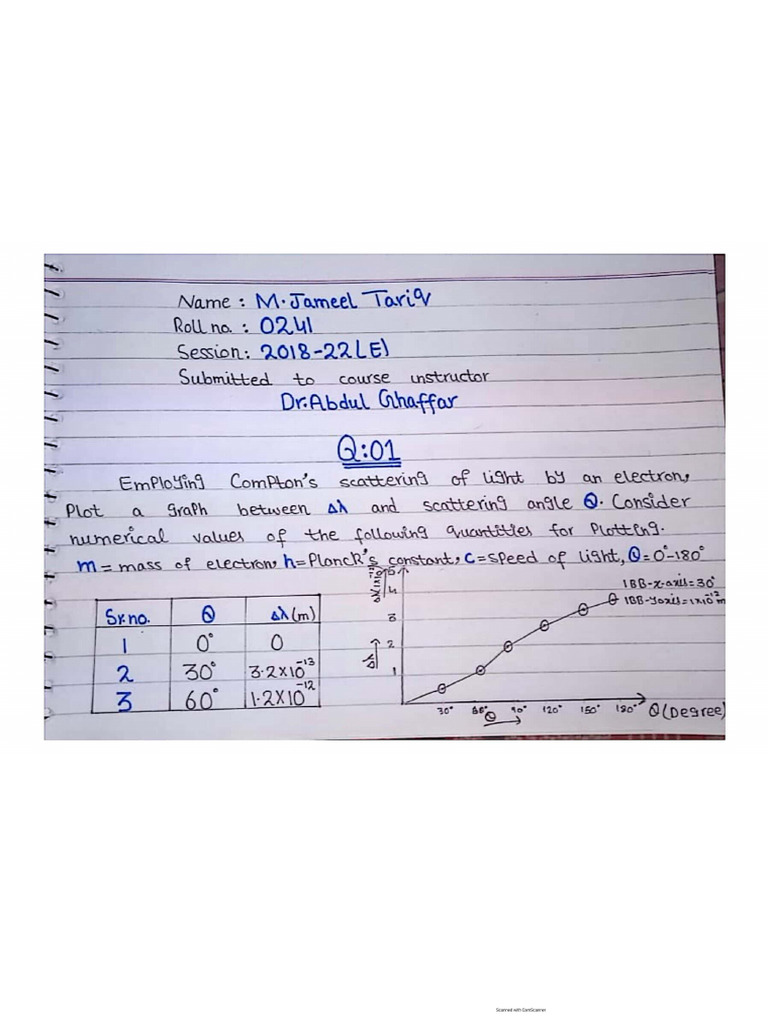 Name : M. Jameel Tariq
Roll no. : 0241
Session: 2018-22(E)
Submitted to course instructor
Dr. Abdul Ghaffar
Q:01
Employing Compton's scattering of light by an electron,
Plot a graph between Δλ and scattering angle θ. Consider
numerical values of the following quantities for Plotting.
m = mass of electron, h = Planck's constant, c = speed of light, θ = 0°-180°
Sr.no. θ Δλ(m)
1 0° 0
2 30° 3.2×10⁻¹³
3 60° 1.2×10⁻¹²
5
4
3
2
1
Δλ
1BB-x-axis = 30°
1BB-yaxis = 1×10⁻¹² m
30° 60° 90° 120° 150° 180° θ (Degree)
θ
Scanned with CamScanner